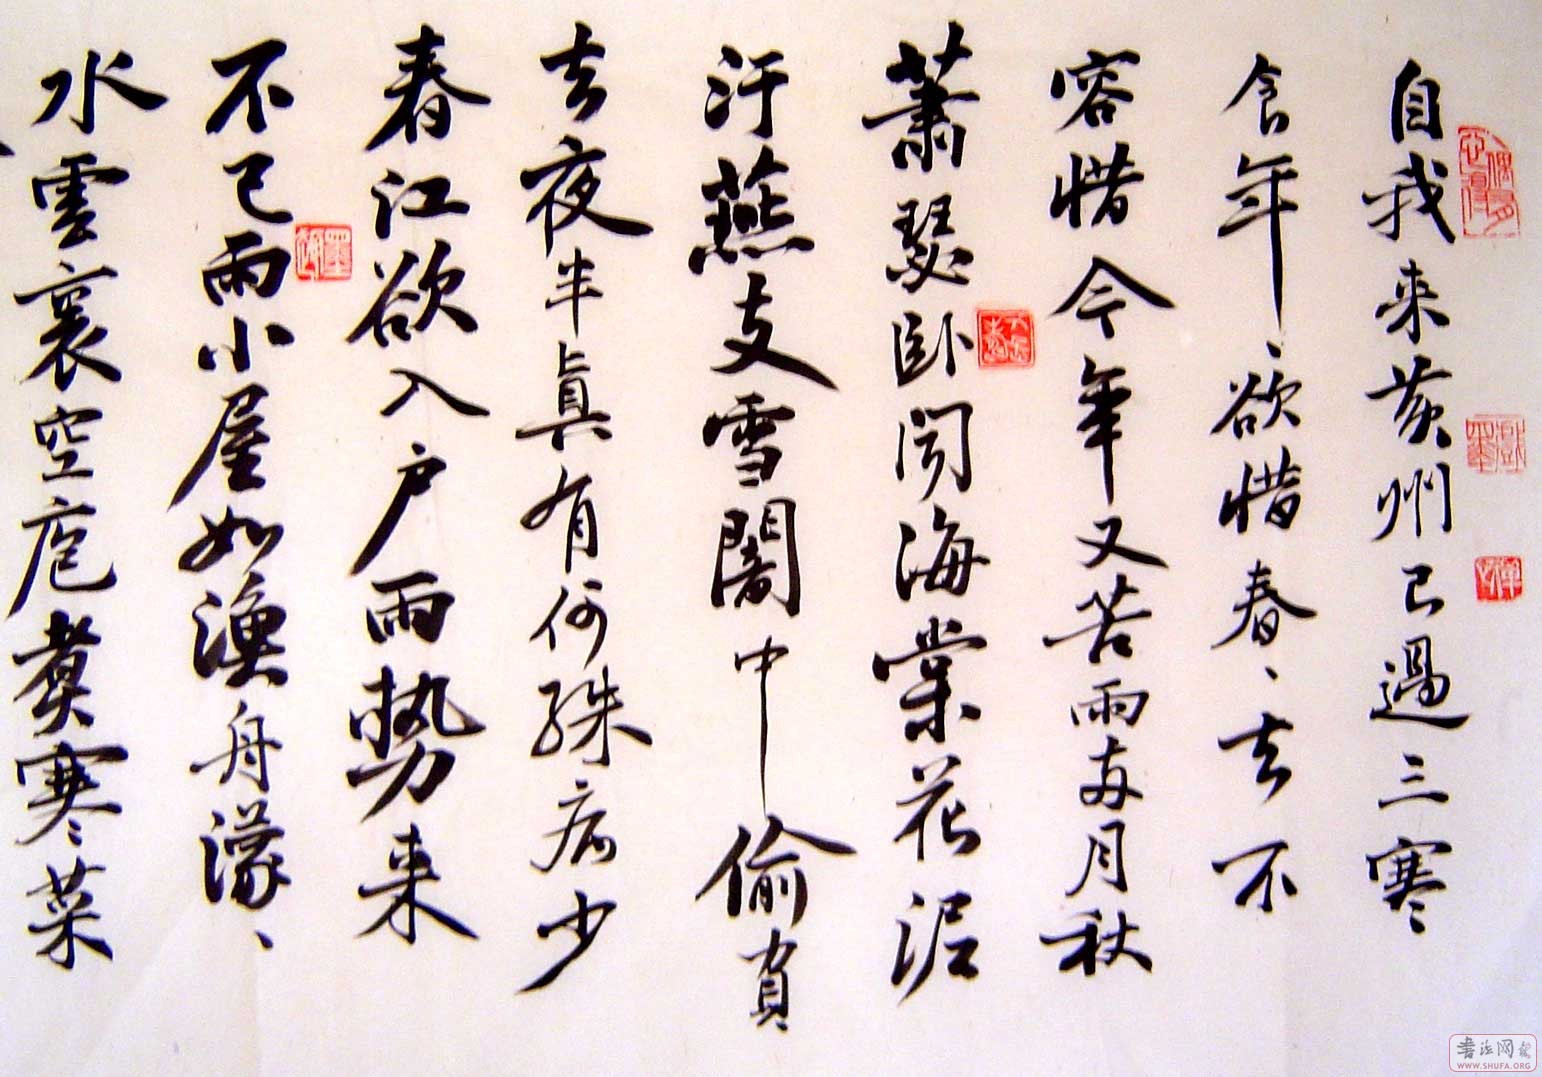 自我来黄州已過三寒
食年、欲惜春、去不
容惜今年又苦雨兩月秋
蕭瑟卧聞海棠花泥
汙燕支雪闇中偷負
去夜半真有何殊病少
春江欲入户雨勢来
不已雨小屋如漁舟濛、
水雲裏空庖煑寒菜
書法网
WWW.SHUFA.ORG